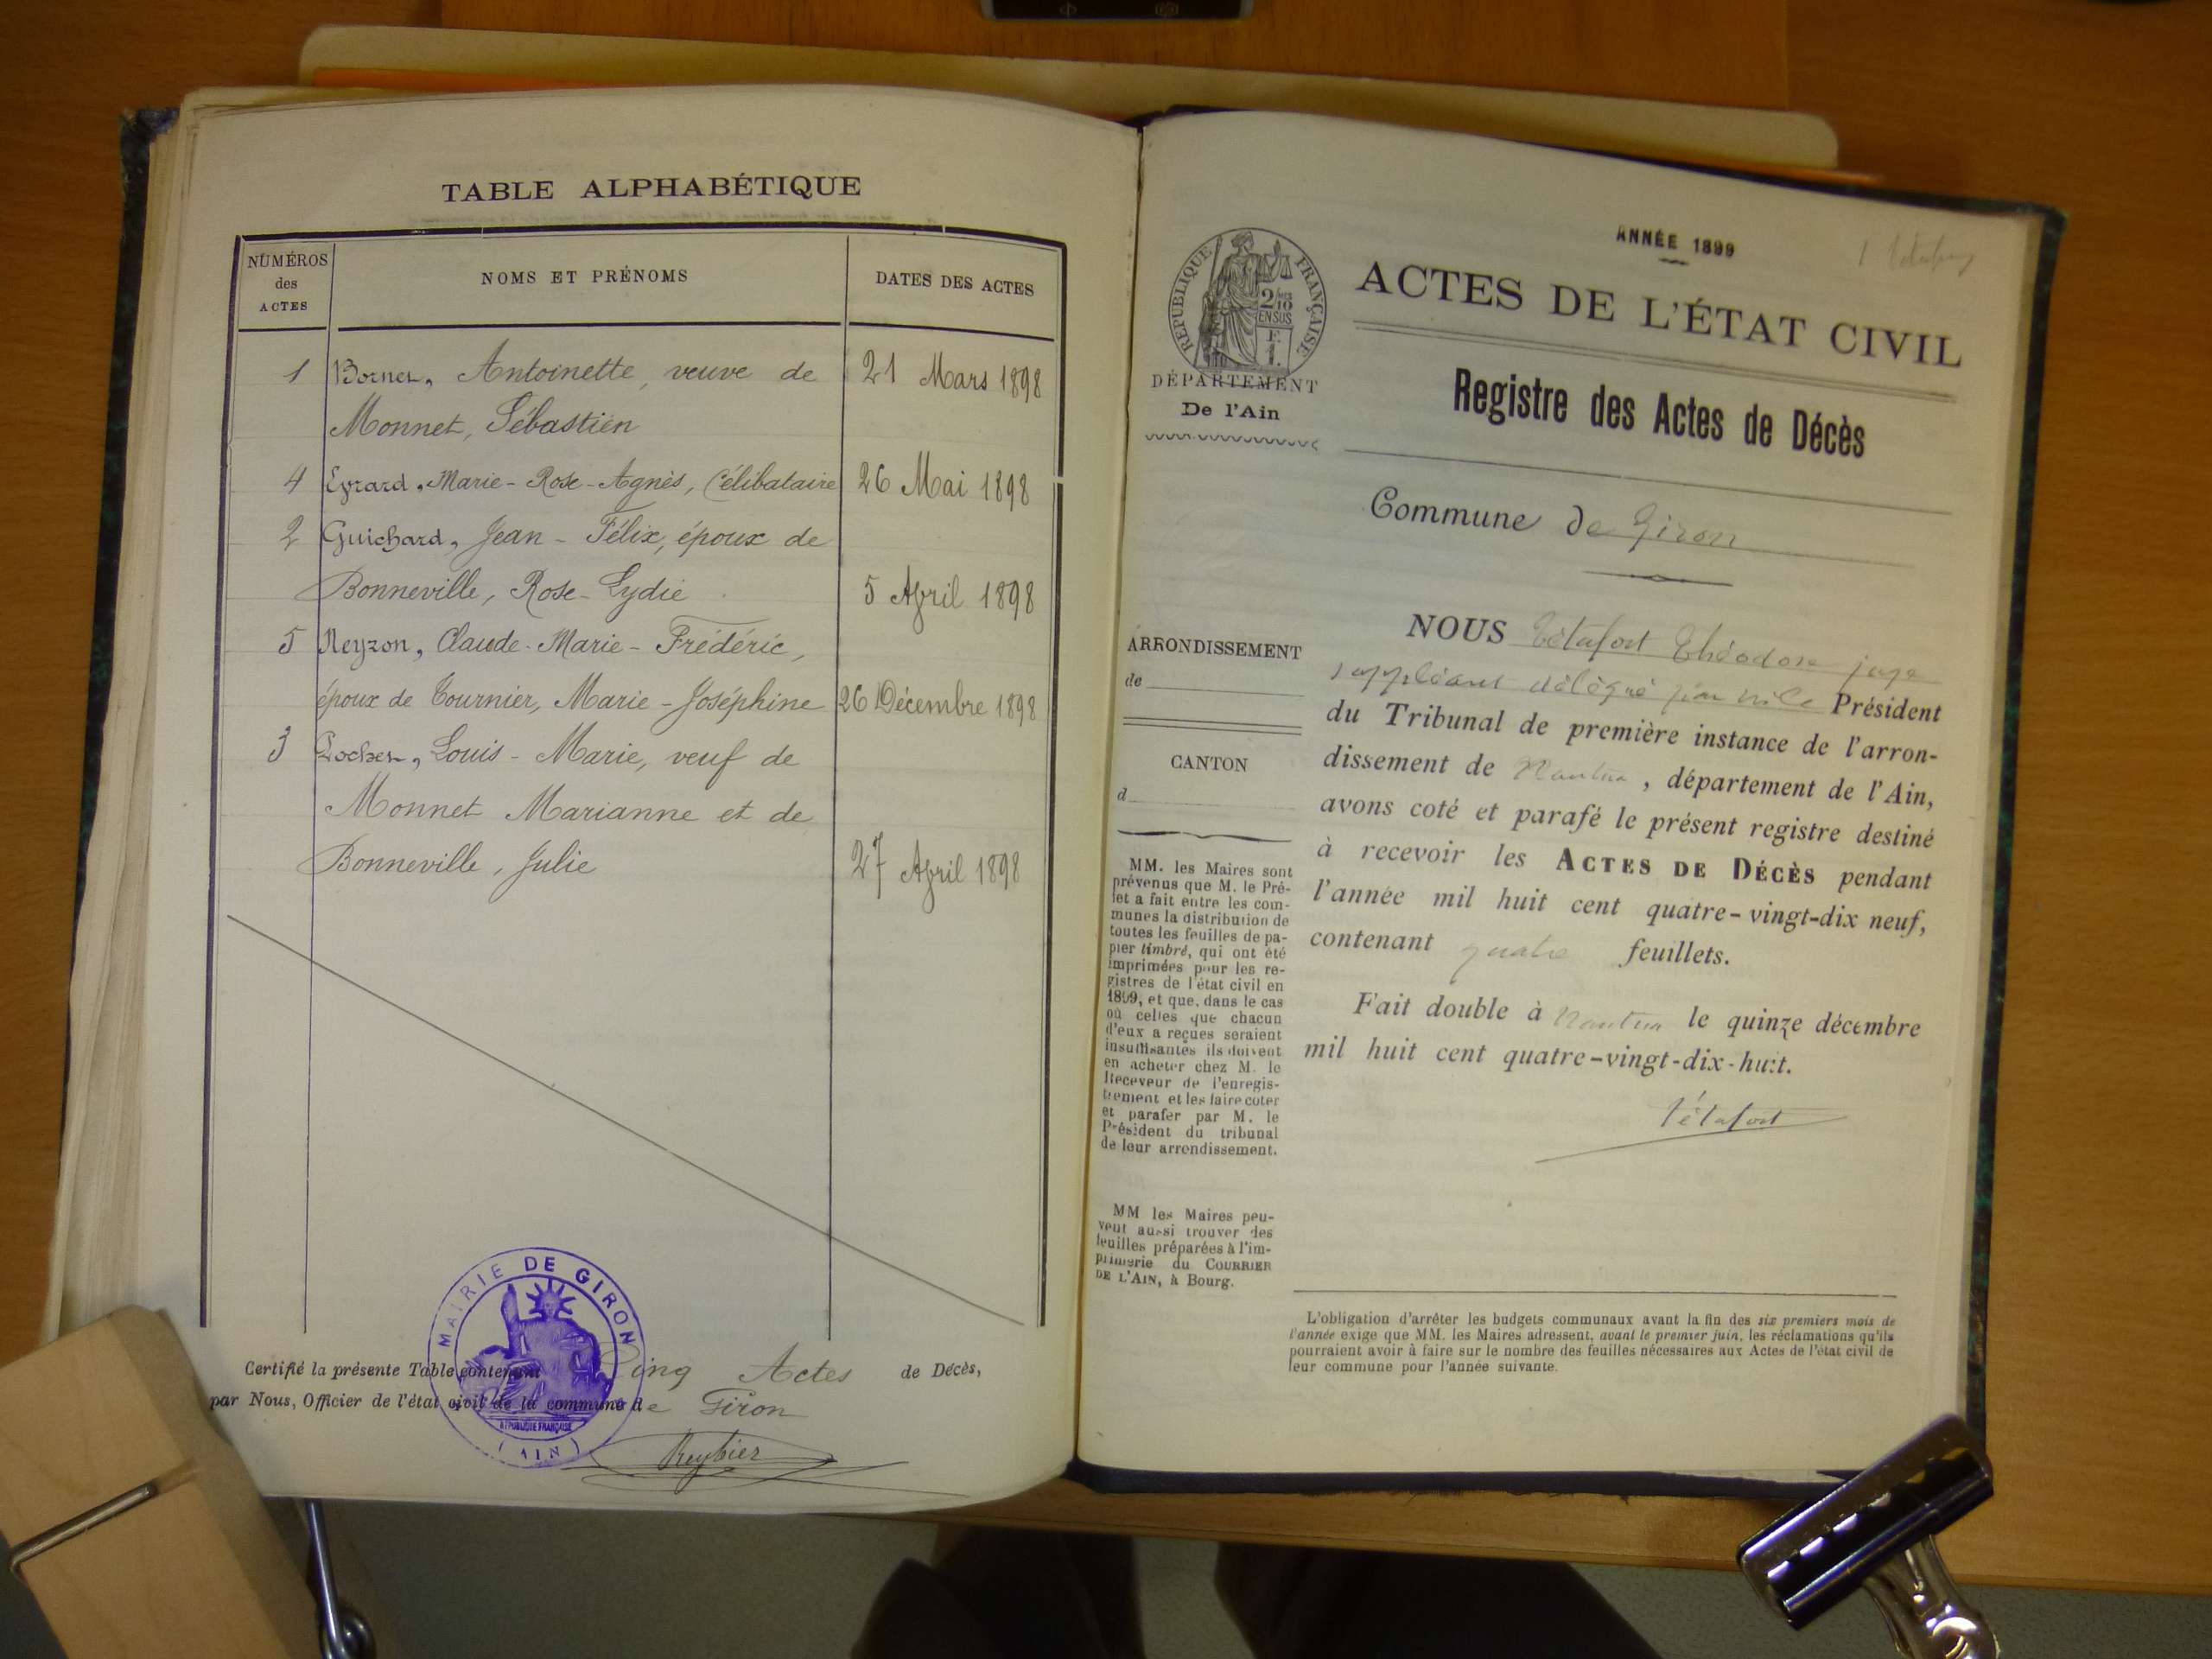 TABLE ALPHABÉTIQUE
NUMÉROS
des
ACTES
NOMS ET PRÉNOMS
DATES DES ACTES
1 Bornet, Antoinette, veuve de 21 Mars 1898
Monnet, Sébastien
4 Evrard, Marie-Rose-Agnès, Célibataire 26 Mai 1898
2 Guichard, Jean-Félix, époux de
Bonneville, Rose-Lydie 5 Avril 1898
5 Neyzon, Claude-Marie-Frédéric,
époux de Tournier, Marie-Joséphine 26 Décembre 1898
3 Pochet, Louis-Marie, veuf de
Monnet Marianne et de
Bonneville, Julie 27 Avril 1898
Certifié la présente Table contenant Cinq Actes de Décès,
par Nous, Officier de l'état civil de la commune de Giron
MAIRIE DE GIRON
RÉPUBLIQUE FRANÇAISE
(AIN)
Reybier
ANNÉE 1899
RÉPUBLIQUE FRANÇAISE
2/10
EN SUS
F.
1.
ACTES DE L'ÉTAT CIVIL
DÉPARTEMENT
De l'Ain
Registre des Actes de Décès
Commune de Giron
ARRONDISSEMENT
de
CANTON
d
MM. les Maires sont
prévenus que M. le Pré-
fet a fait entre les com-
munes la distribution de
toutes les feuilles de pa-
pier timbré, qui ont été
imprimées pour les re-
gistres de l'état civil en
1899, et que, dans le cas
où celles que chacun
d'eux a reçues seraient
insuffisantes ils doivent
en acheter chez M. le
Receveur de l'enregis-
trement et les faire coter
et parafer par M. le
Président du tribunal
de leur arrondissement.
MM les Maires peu-
vent aussi trouver des
feuilles préparées à l'im-
primerie du COURRIER
DE L'AIN, à Bourg.
NOUS Tétafort Théodore juge
suppléant délégué par Mr le Président
du Tribunal de première instance de l'arron-
dissement de Nantua, département de l'Ain,
avons coté et parafé le présent registre destiné
à recevoir les ACTES DE DÉCÈS pendant
l'année mil huit cent quatre-vingt-dix neuf,
contenant quatre feuillets.
Fait double à Nantua le quinze décembre
mil huit cent quatre-vingt-dix-huit.
Tétafort
L'obligation d'arrêter les budgets communaux avant la fin des six premiers mois de
l'année exige que MM. les Maires adressent, avant le premier juin, les réclamations qu'ils
pourraient avoir à faire sur le nombre des feuilles nécessaires aux Actes de l'état civil de
leur commune pour l'année suivante.